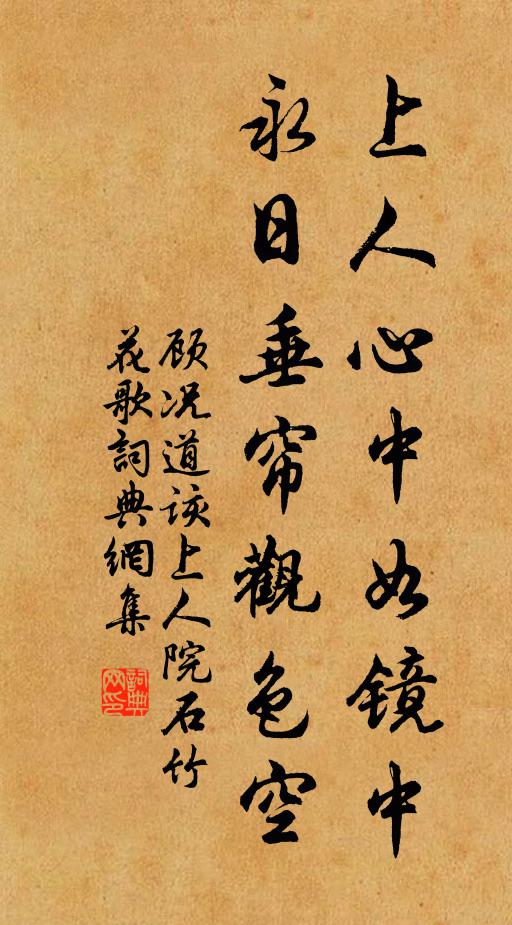 上人心中如镜中
永日垂帘觀色空
顾况道该上人院石竹
花歌詞典網集
詞典
网印